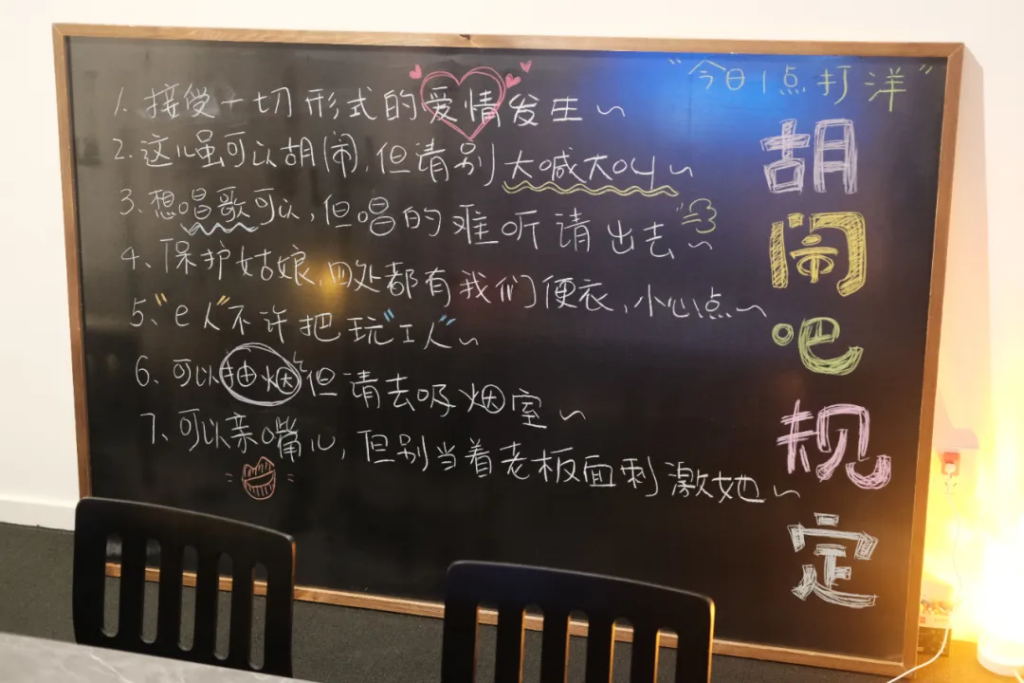 "今日1点打洋"
1、接受一切形式的爱情发生~
2、这儿虽可以胡闹,但请别大喊大叫~
3、想唱歌可以,但唱的难听请出去~
4、保护姑娘,四处都有我们便衣,小心点~
5、"e人"不许把玩"I人"~
6、可以抽烟,但请去吸烟室~
7、可以亲嘴儿,但别当着老板面刺激她~
胡闹吧规定